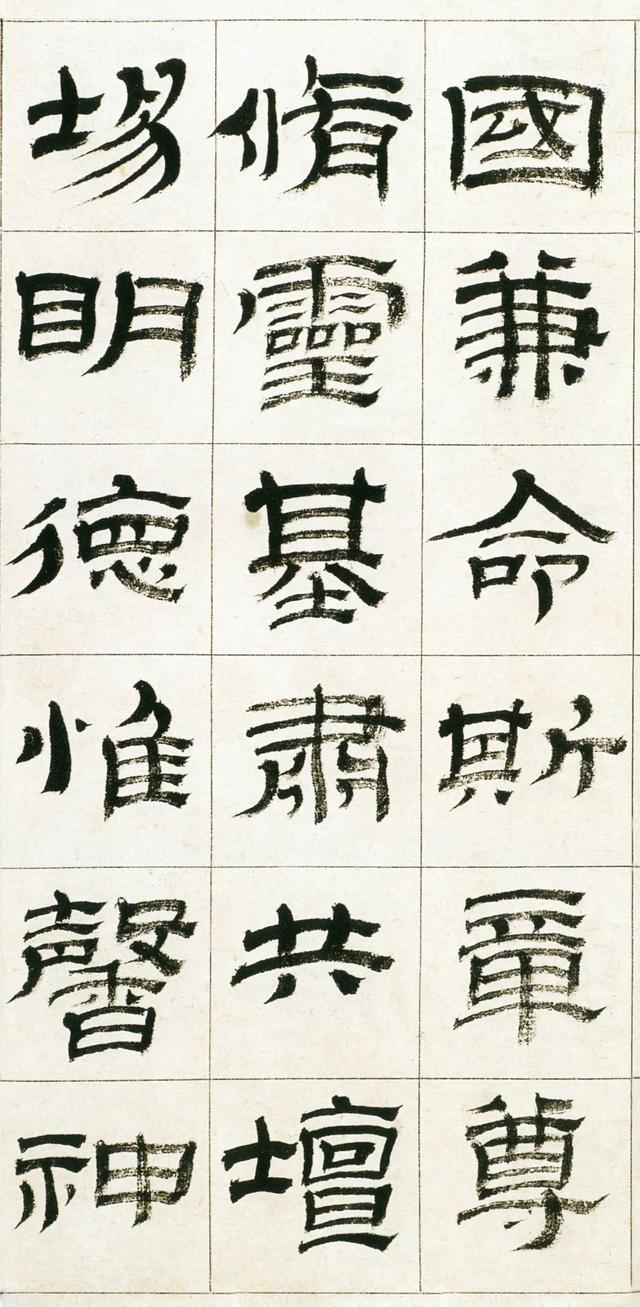 國兼命斯章尊
脩靈基肅共壇
埸明德惟馨神